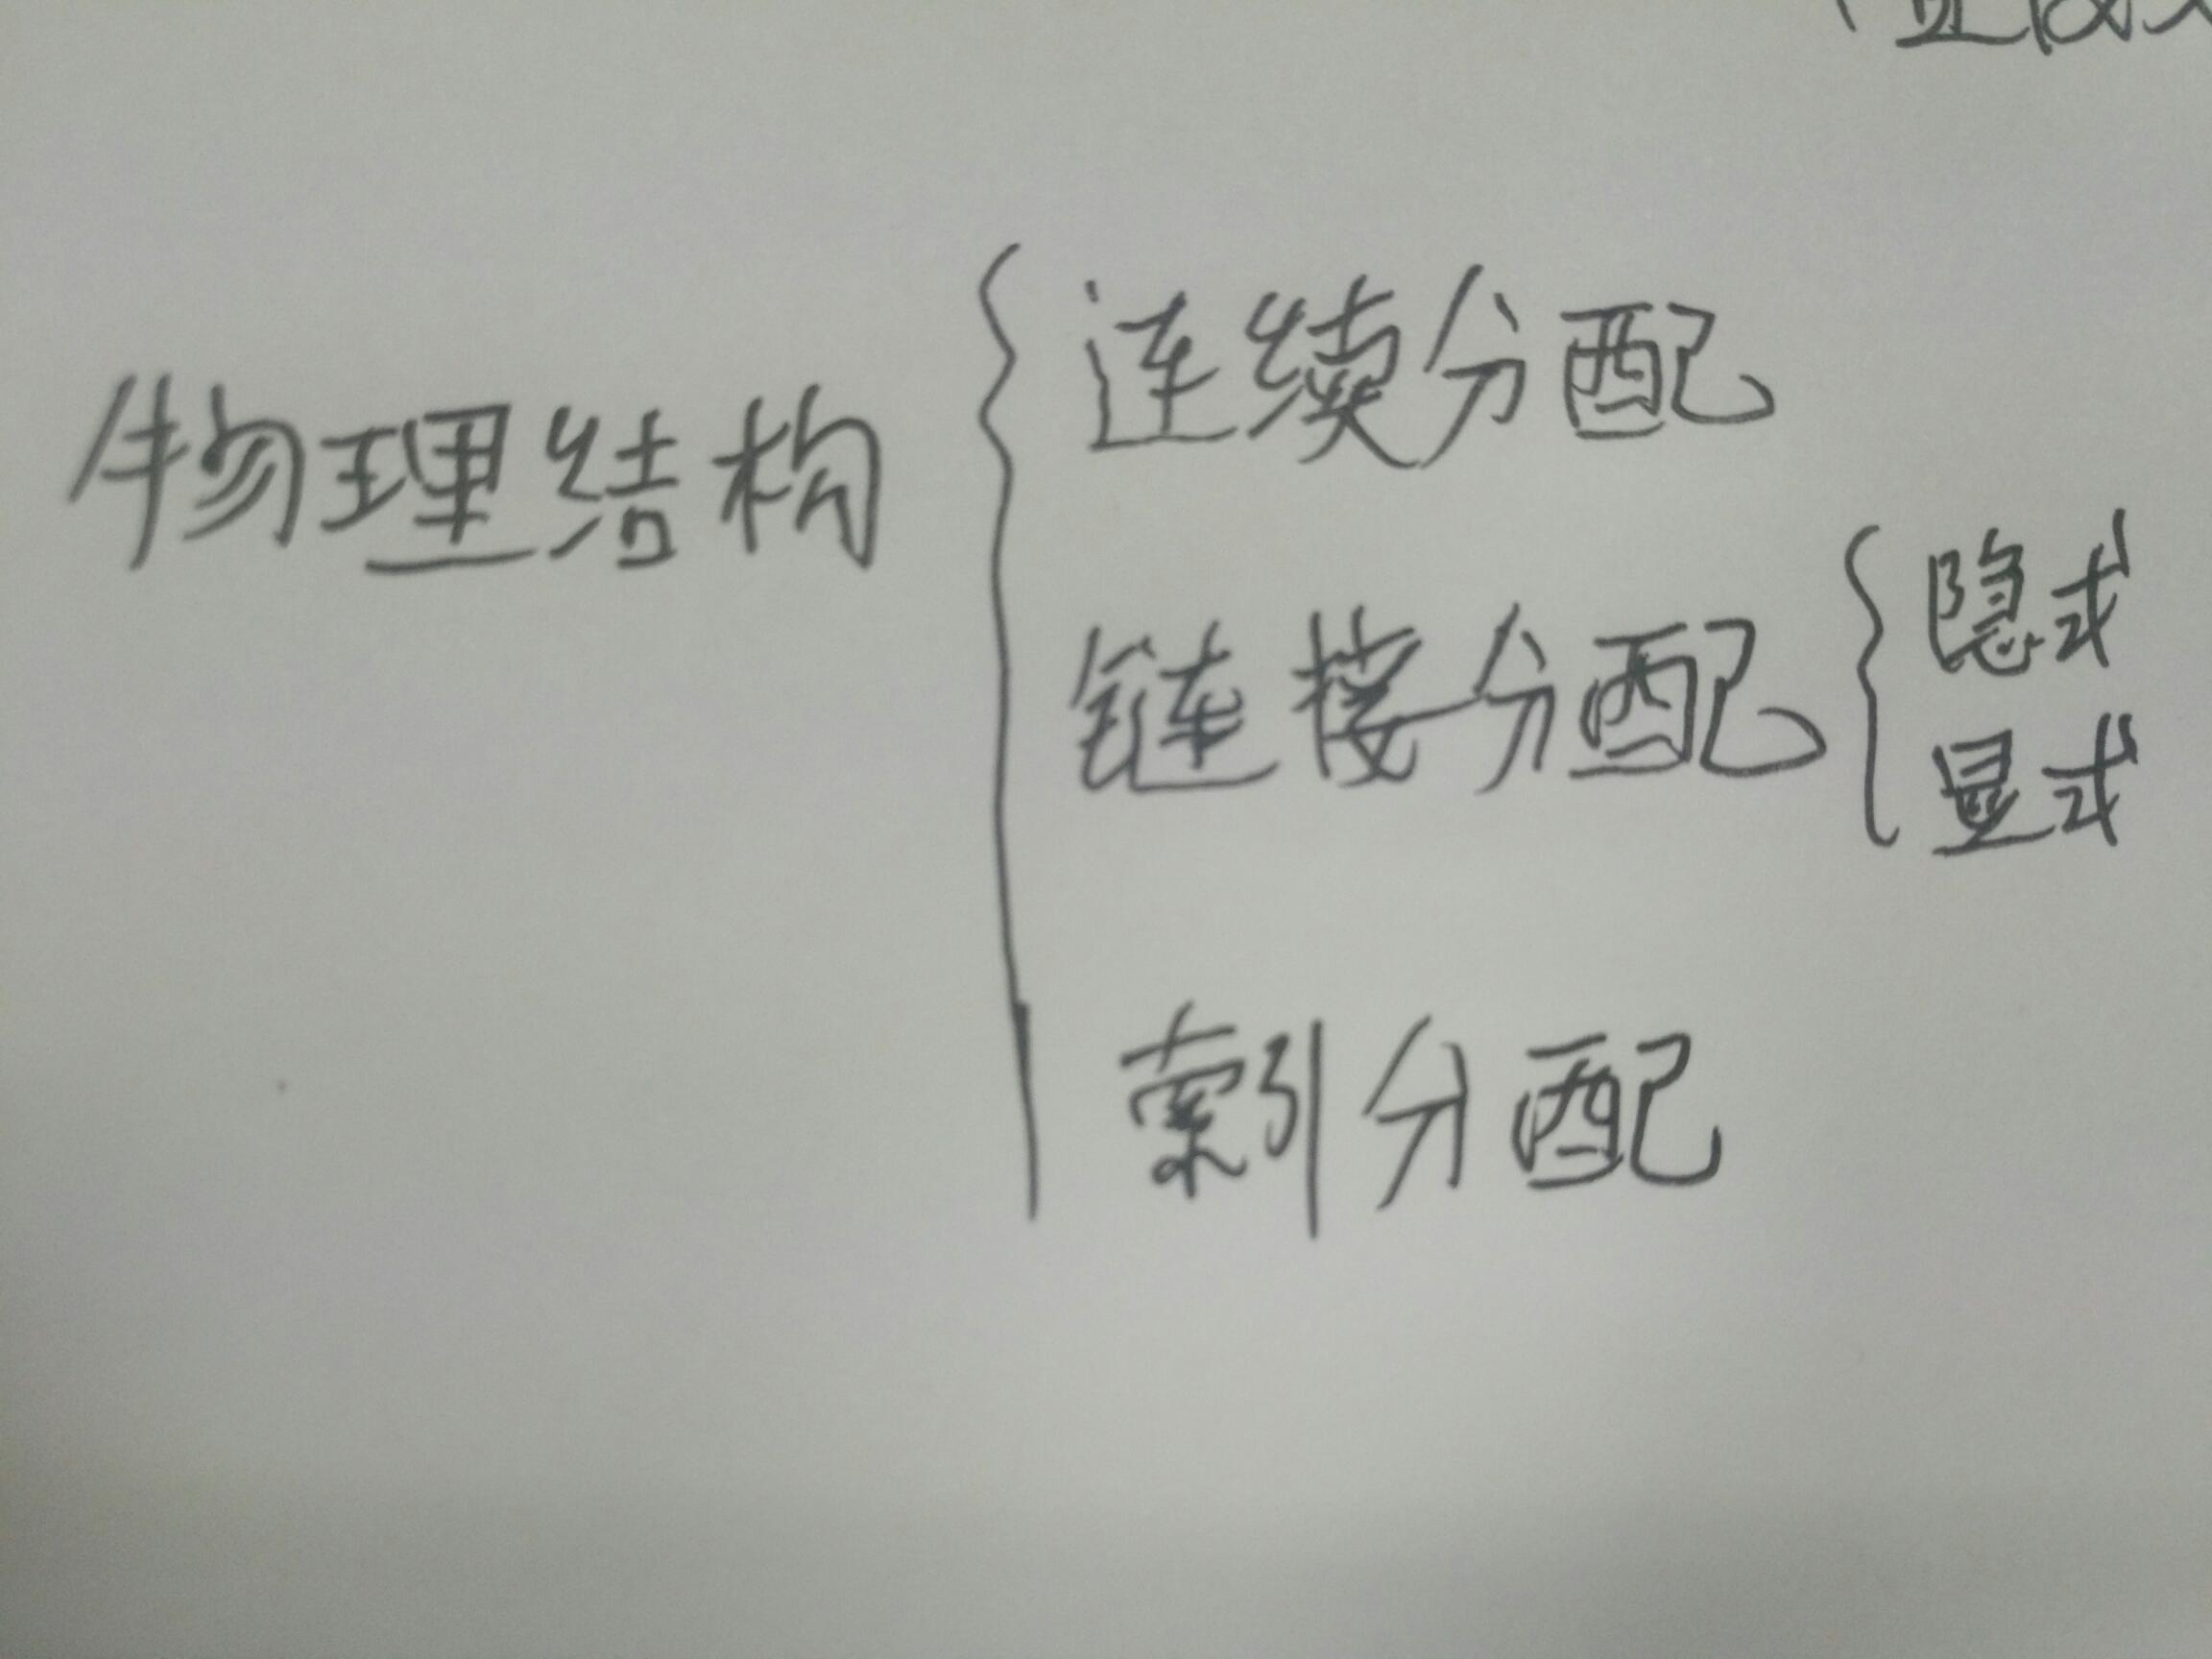 连续分配
物理结构
隐式
链接分配
显式
索引分配